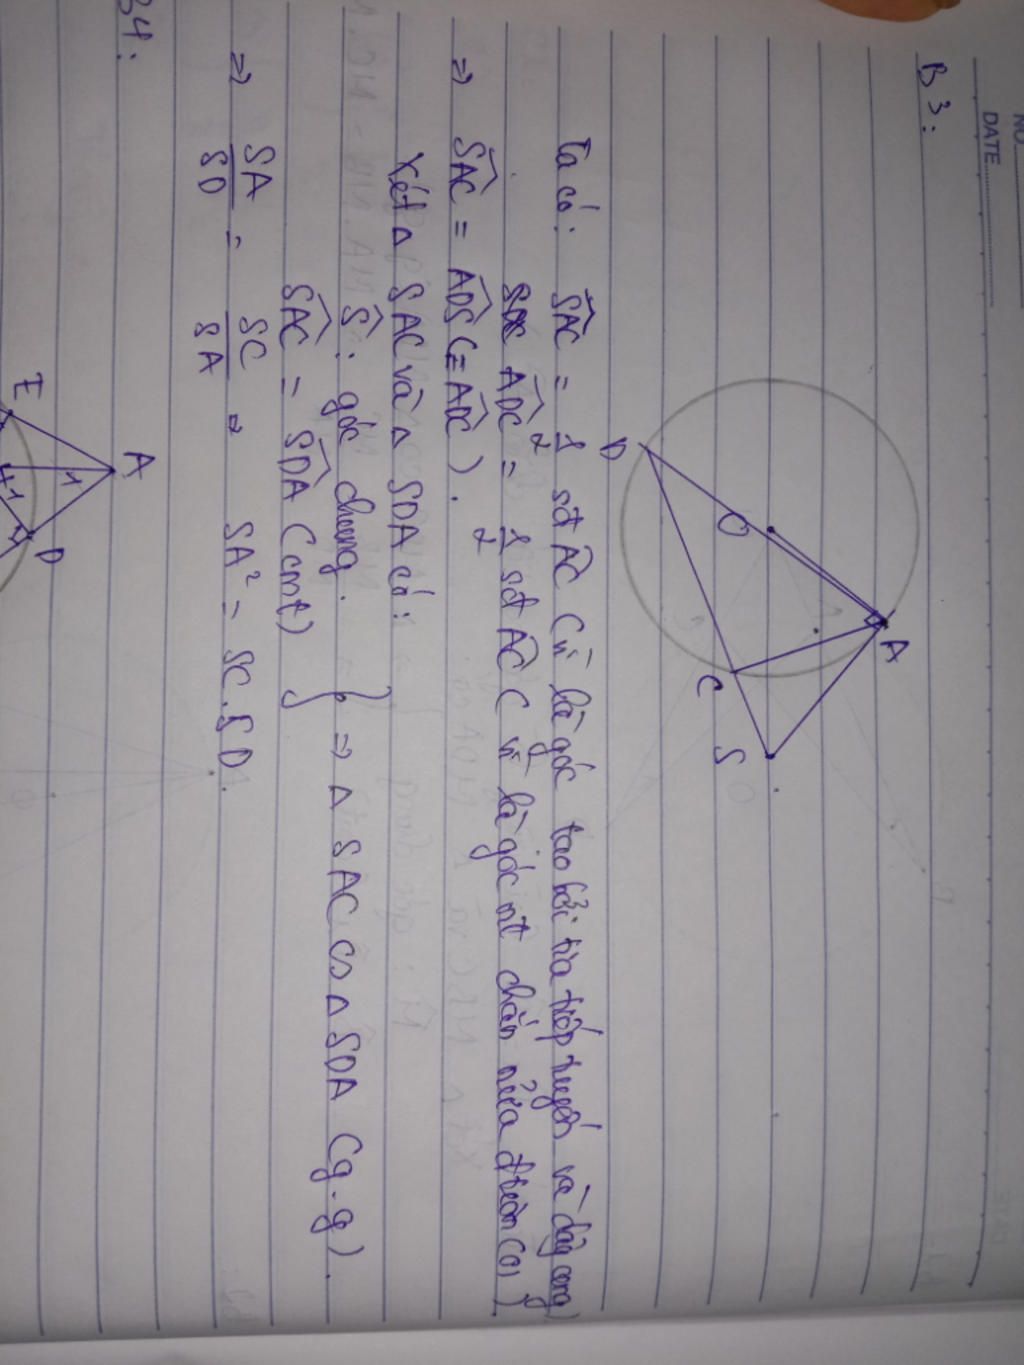 NO
DATE
B3:
A
O
D
C
S
Ta có: SAC = 1/2 sđ AC (vì là góc tạo bởi tia tiếp tuyến và dây cung)
ADC = 1/2 sđ AC (vì là góc nt chắn nửa đường (O)).
=> SAC = ADS (= ADC).
Xét Δ SAC và Δ SDA có:
S: góc chung.
SAC = SDA (cmt)
} => Δ SAC ∽ Δ SDA (g.g).
=> SA/SD = SC/SA => SA² = SC.SD.
B4:
A
1
E
D